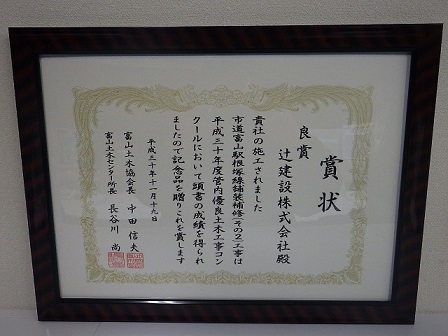 賞状
良賞
辻建設株式会社殿
貴社の施工されました
市道富山駅根塚線舗装補修(その2)工事は
平成三十年度管内優良土木工事コン
クールにおいて頭書の成績を得られ
ましたので記念品を贈りこれを賞します
平成三十年十一月十九日
富山土木協会長 中田信夫
富山土木センター所長 長谷川尚